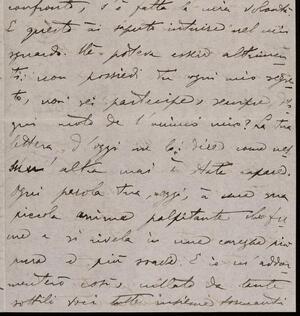 confronti, s'è fatta la mia volontà
E questo ài saputo intuire nel mio
sguardo. Né poteva essere altrimen-
ti: non possiedi tu ogni mio segre-
to, non sei partecipe, sempre, d'o-
gni moto de l'animo mio? La tua
lettera d'oggi me lo dice come nes-
sun' altra mai è stata capace.
Ogni parola tua, oggi, à una sua
piccola anima palpitante che fre
me e si rivela in una carezza più
pura e più soave. E io m'addor-
mentero così, cullato da tante
sottili voci tutte insieme sonanti